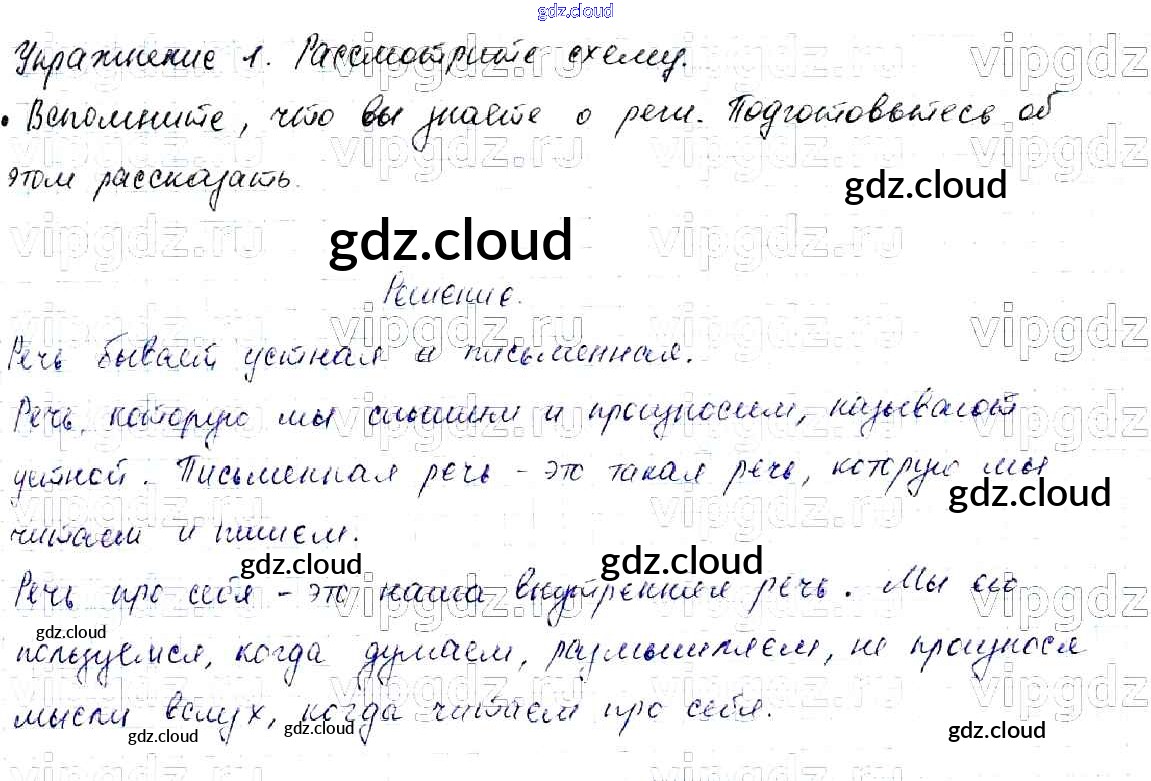 gdz.cloud
Упражнение 1. Рассмотрите схему.
• Вспомните, что вы знаете о речи. Подготовьтесь об
этом рассказать.
gdz.cloud
gdz.cloud
Решение.
Речь бывает устная и письменная.
Речь, которую мы слышим и произносим, называют
устной. Письменная речь - это такая речь, которую мы
gdz.cloud
читаем и пишем.
gdz.cloud gdz.cloud
Речь про себя - это наша внутренняя речь. Мы ею
gdz.cloud
пользуемся, когда думаем, размышляем, не произнося
мысли вслух, когда читаем про себя.
gdz.cloud gdz.cloud gdz.cloud
vipgdz.ru vipgdz.ru vipgdz
vipgdz.ru vipgdz.ru vipgdz
vipgdz.ru vipgdz.ru vipgdz
vipgdz.ru vipgdz.ru vipgdz
vipgdz.ru vipgdz.ru vipgdz
vipgdz.ru vipgdz.ru vipgdz
vipgdz.ru vipgdz.ru vipgdz
vipgdz.ru vipgdz.ru vipgdz
vipgdz.ru vipgdz.ru vipgdz